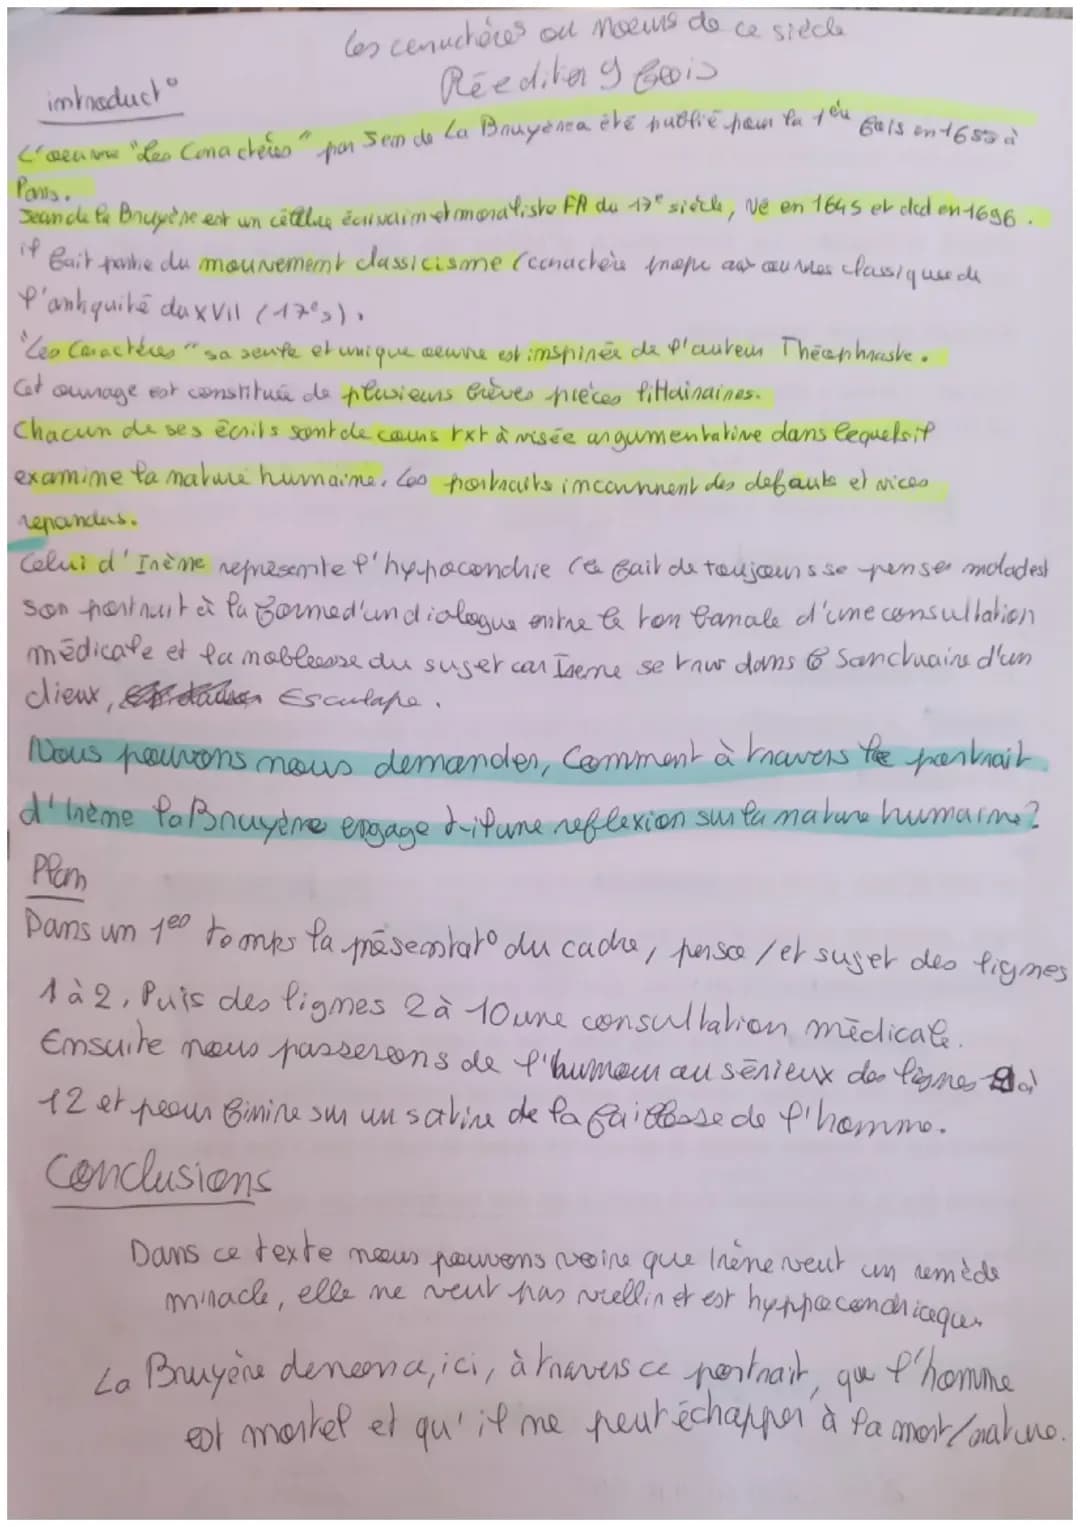 Les caractères ou Moeurs de ce siècle
Réediter 9 fois
introduct°
L'oeuvre "Les Caractères" par Jean de La Bruyère a été publié pour la 1ère fois en 1688 à
Paris.
Jean de la Bruyère est un célèbre écrivain et moraliste FR du 17e siècle, Né en 1645 et dcd en 1696.
il fait partie du mouvement classicisme (caractère propre aux œuvres classique de
l'antiquité du XVII (17e s).
"Les Caractères" sa seule et unique œuvre est inspirée de l'auteur Théophraste.
Cet ouvrage est constituée de plusieurs brèves pièces littéraires.
Chacun de ses écrits sont de cours txt à visée argumentative dans lequels il
examine la nature humaine. Les portraits incarnent des defauts et vices
repandus.
Celui d'Irène représente l'hypocondrie (le fait de toujours se penser malades)
son portrait à la forme d'un dialogue entre le ton banale d'une consultation
médicale et la noblesse du sujet car Irene se trouv dans le Sanctuaire d'un
dieux, Esculape.
Nous pouvons nous demander, Comment à travers le portrait
d'Irème la Bruyère engage t-il une reflexion sur la nature humaine?
Plan
Dans un 1er temps la présentat° du cadre, perso / et sujet des lignes
1 à 2. Puis des lignes 2 à 10 une consultation médicale.
Ensuite nous passerons de l'humour au sérieux des lignes à
12 et pour finire sur un satire de la faiblesse de l'homme.
Conclusions
Dans ce texte nous pouvons voire que Irène veut un remède
miracle, elle ne veut pas viellir et est hyppocondriaque.
La Bruyère denonce, ici, à travers ce portrait, que l'homme
est mortel et qu'il ne peut échapper à la mort/nature.